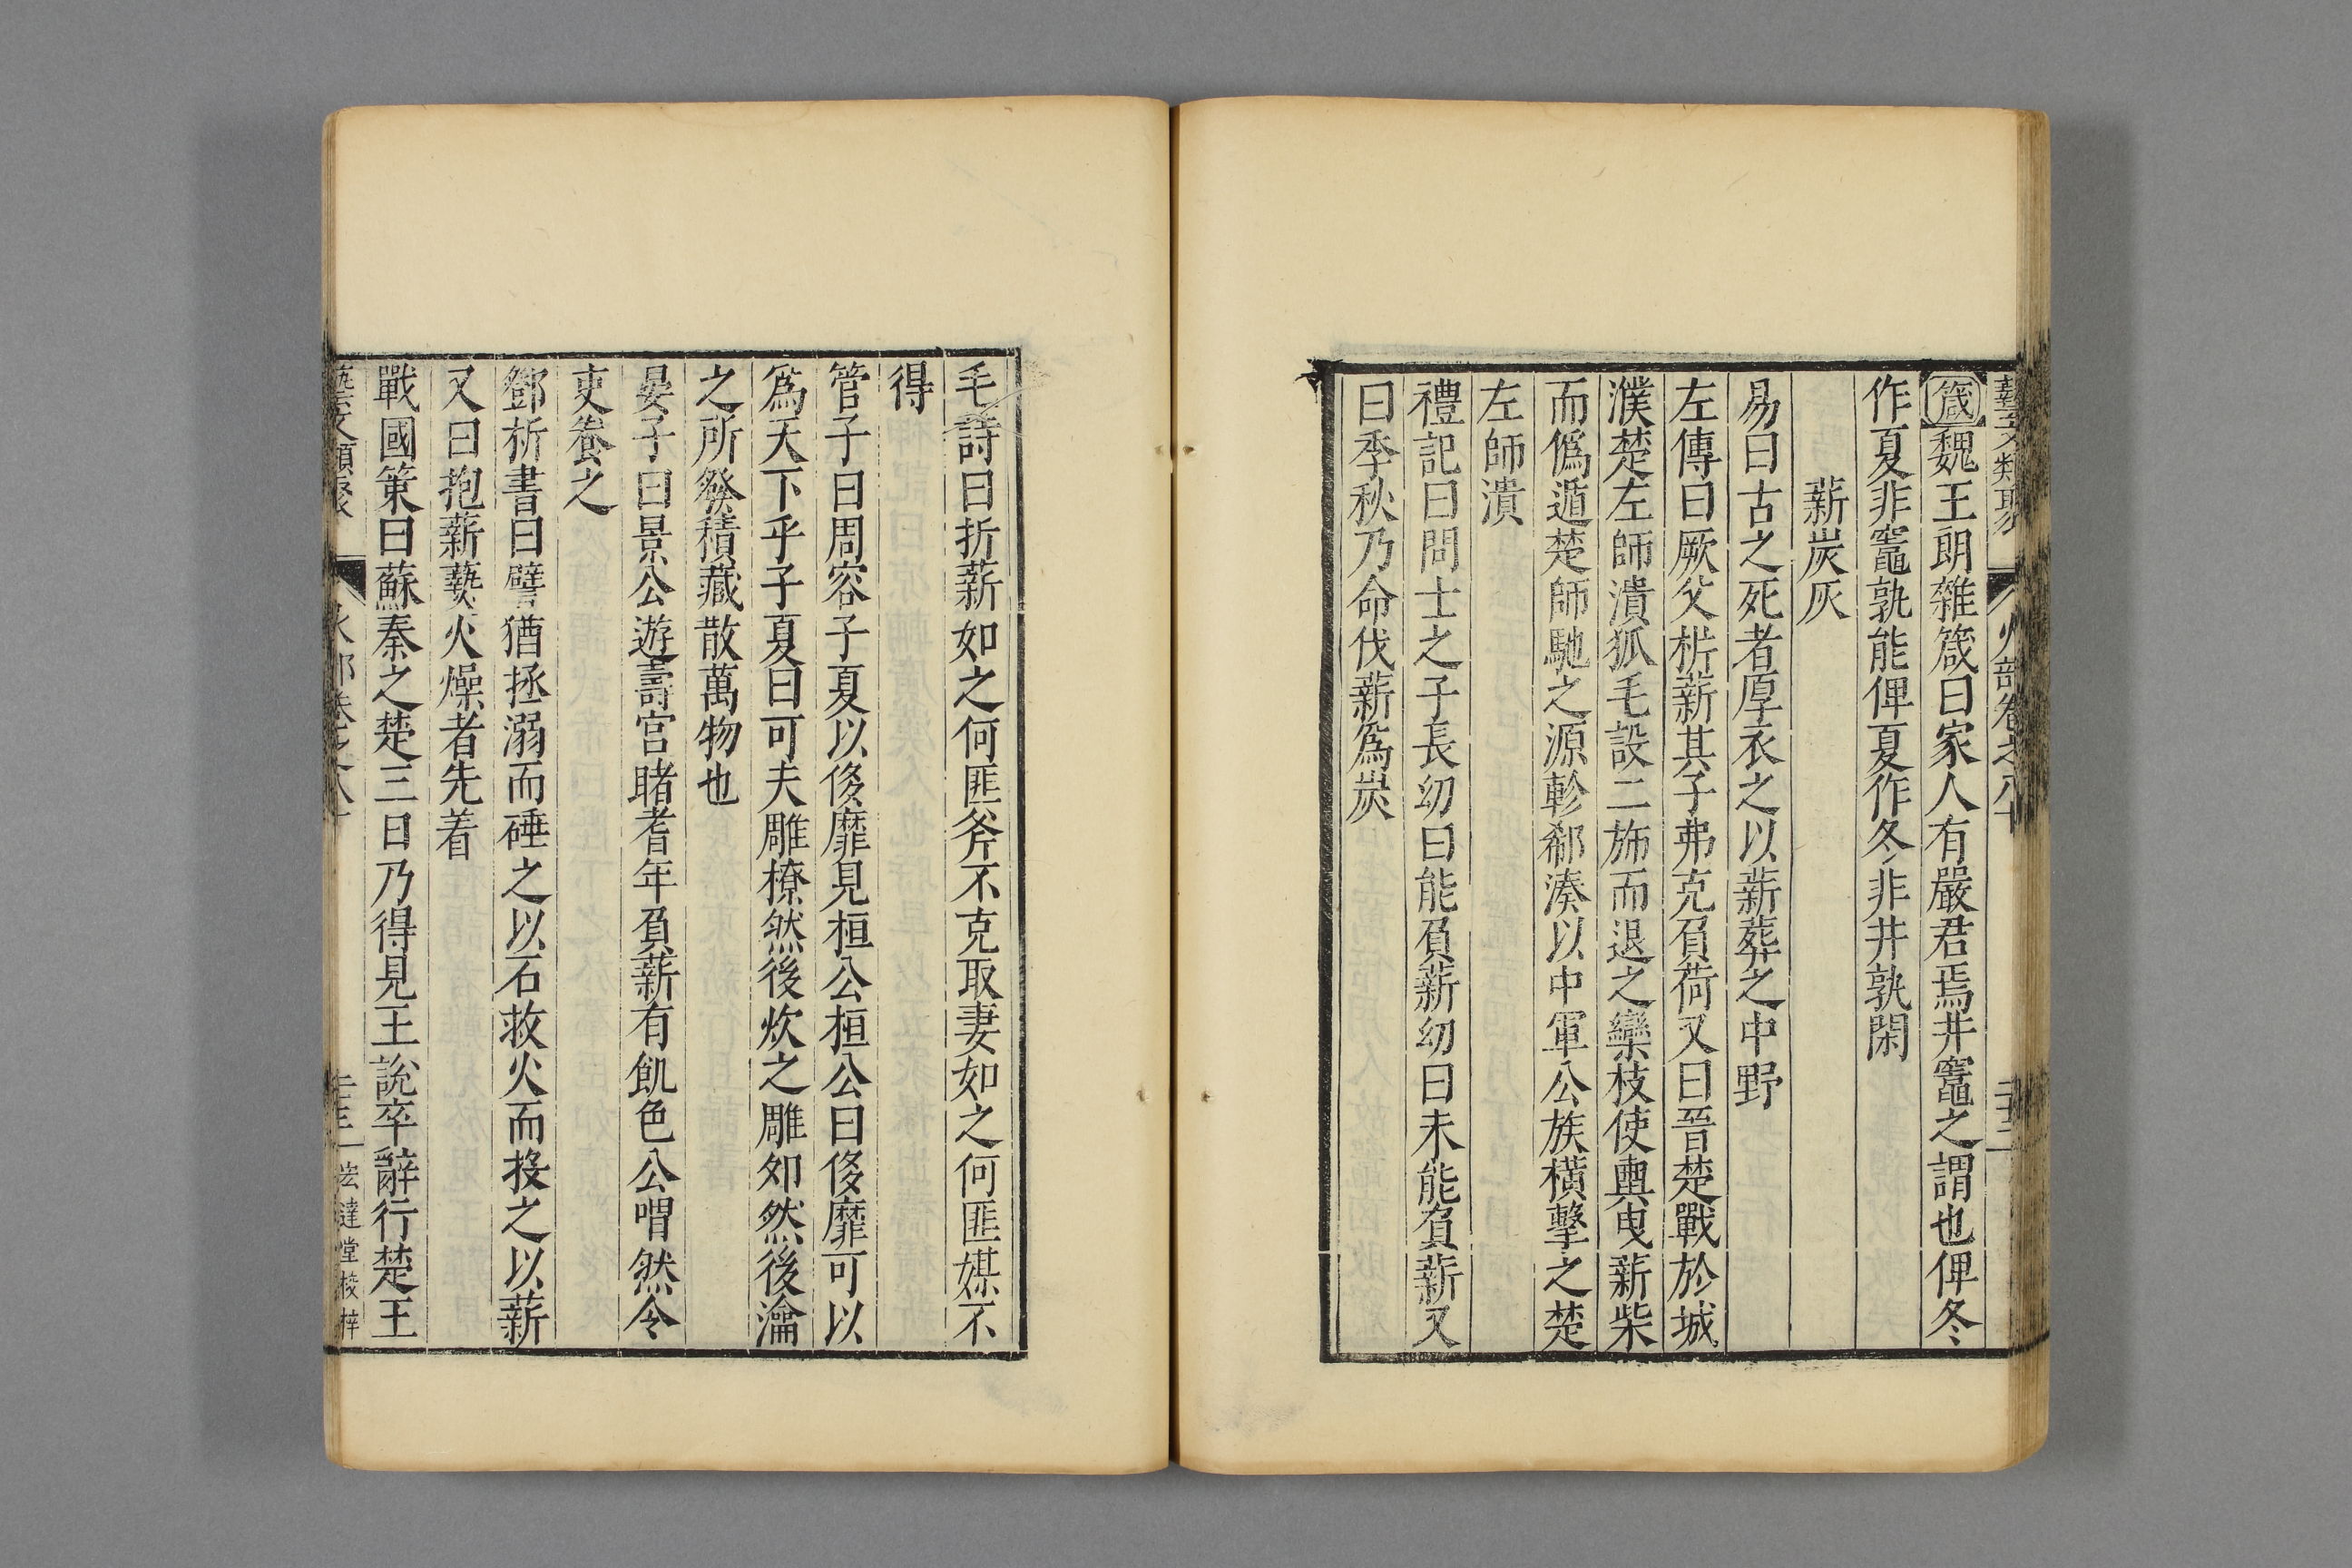 藝文類聚 火部卷之八十 二十二
箴魏王朗雜箴曰家人有嚴君焉井竈之謂也俾冬
作夏非竈孰能俾夏作冬非井孰閑
薪炭灰
易曰古之死者厚衣之以薪葬之中野
左傳曰厥父析薪其子弗克負荷又曰晉楚戰於城
濮楚左師潰狐毛設二斾而退之欒枝使輿曳薪柴
而僞遁楚師馳之源軫郤湊以中軍公族橫擊之楚
左師潰
禮記曰問士之子長幼曰能負薪幼曰未能負薪又
曰季秋乃命伐薪爲炭
毛詩曰折薪如之何匪斧不克取妻如之何匪媒不
得
管子曰周容子夏以侈靡見桓公桓公曰侈靡可以
爲天下乎子夏曰可夫雕橑然後炊之雕夘然後瀹
之所發積藏散萬物也
晏子曰景公遊壽宮睹耆年負薪有飢色公喟然令
吏養之
鄧析書曰譬猶拯溺而硾之以石救火而投之以薪
又曰抱薪爇火燥者先着
戰國策曰蘇秦之楚三日乃得見王說卒辭行楚王
藝文類聚 火部卷之八十 二十三 宏達堂校梓